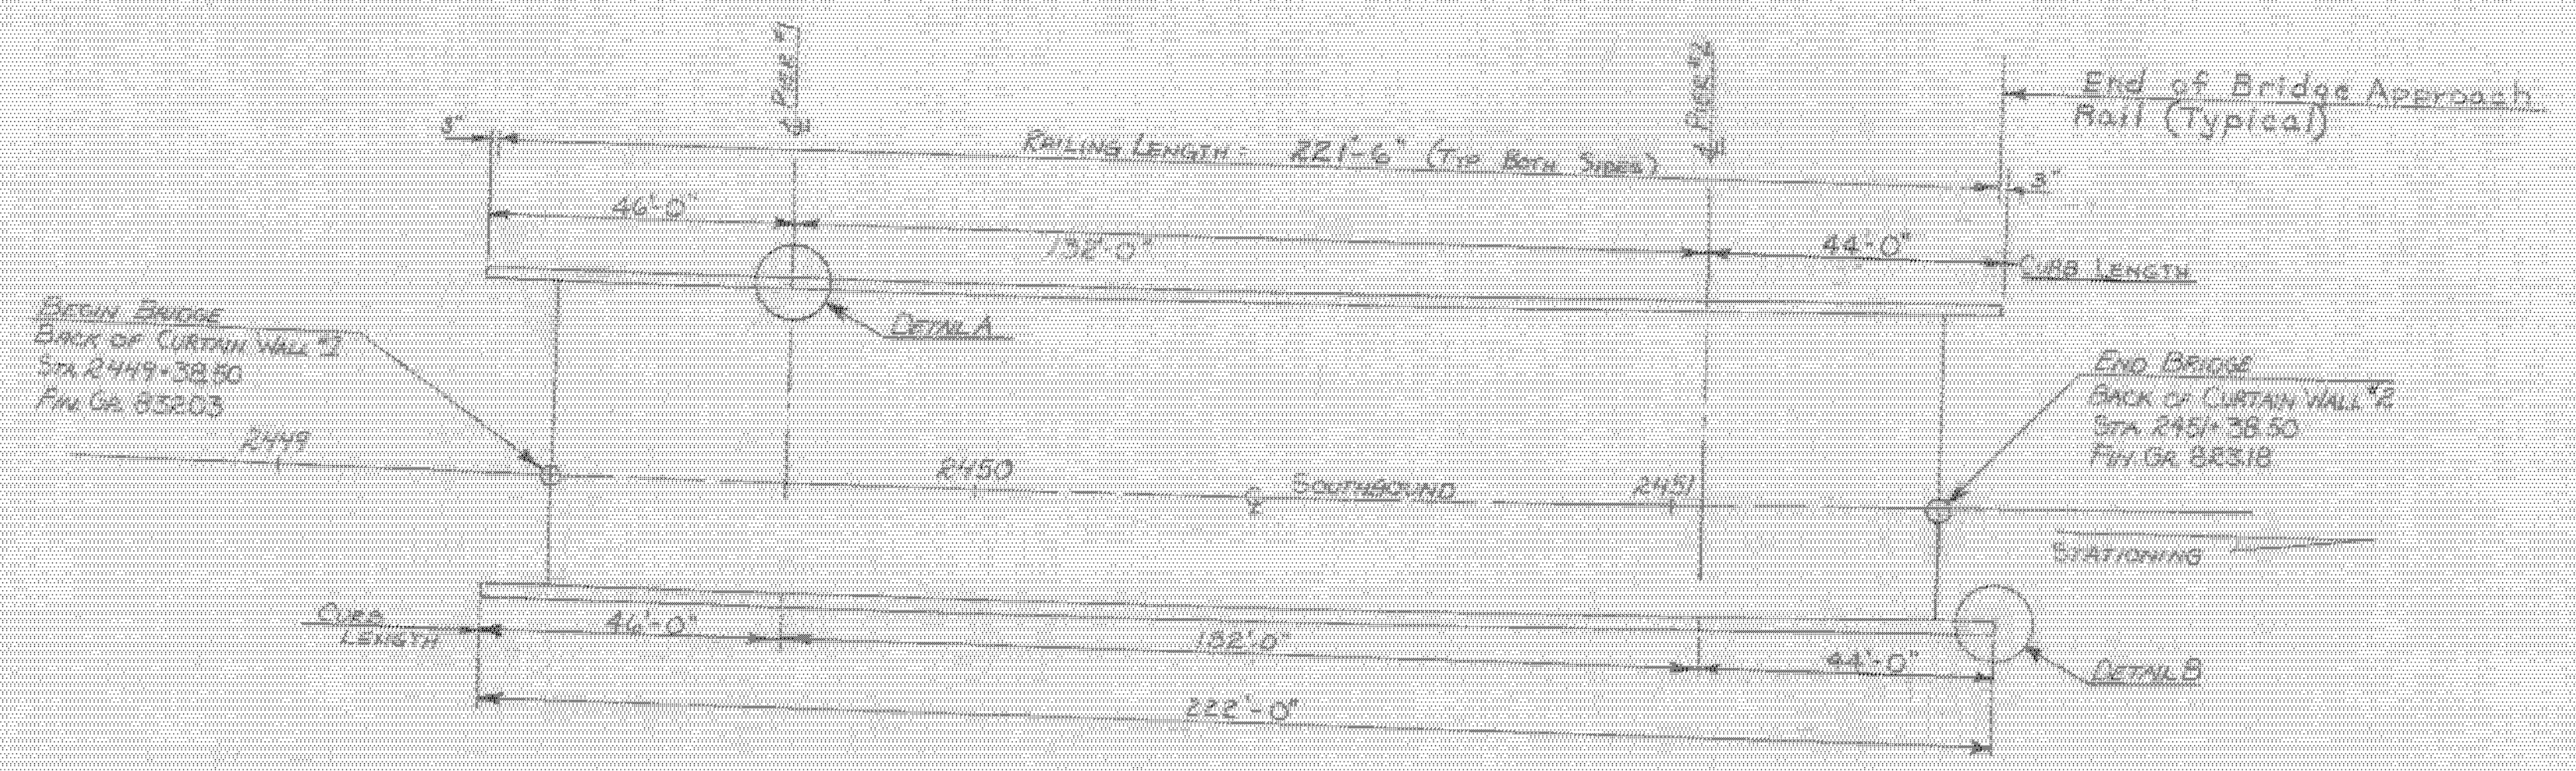 PIER #1
PIER #2
End of Bridge Approach
Rail (Typical)
3"
RAILING LENGTH = 221'-6" (TYP BOTH SIDES)
3"
46'-0"
132'-0"
44'-0"
CURB LENGTH
BEGIN BRIDGE
BACK OF CURTAIN WALL #1
STA 2449+38.50
FIN. GR. 832.03
DETAIL A
END BRIDGE
BACK OF CURTAIN WALL #2
STA 2451+38.50
FIN. GR. 823.18
2449
2450
℄ SOUTHBOUND
2451
STATIONING
CURB
LENGTH
46'-0"
132'-0"
44'-0"
DETAIL B
222'-0"